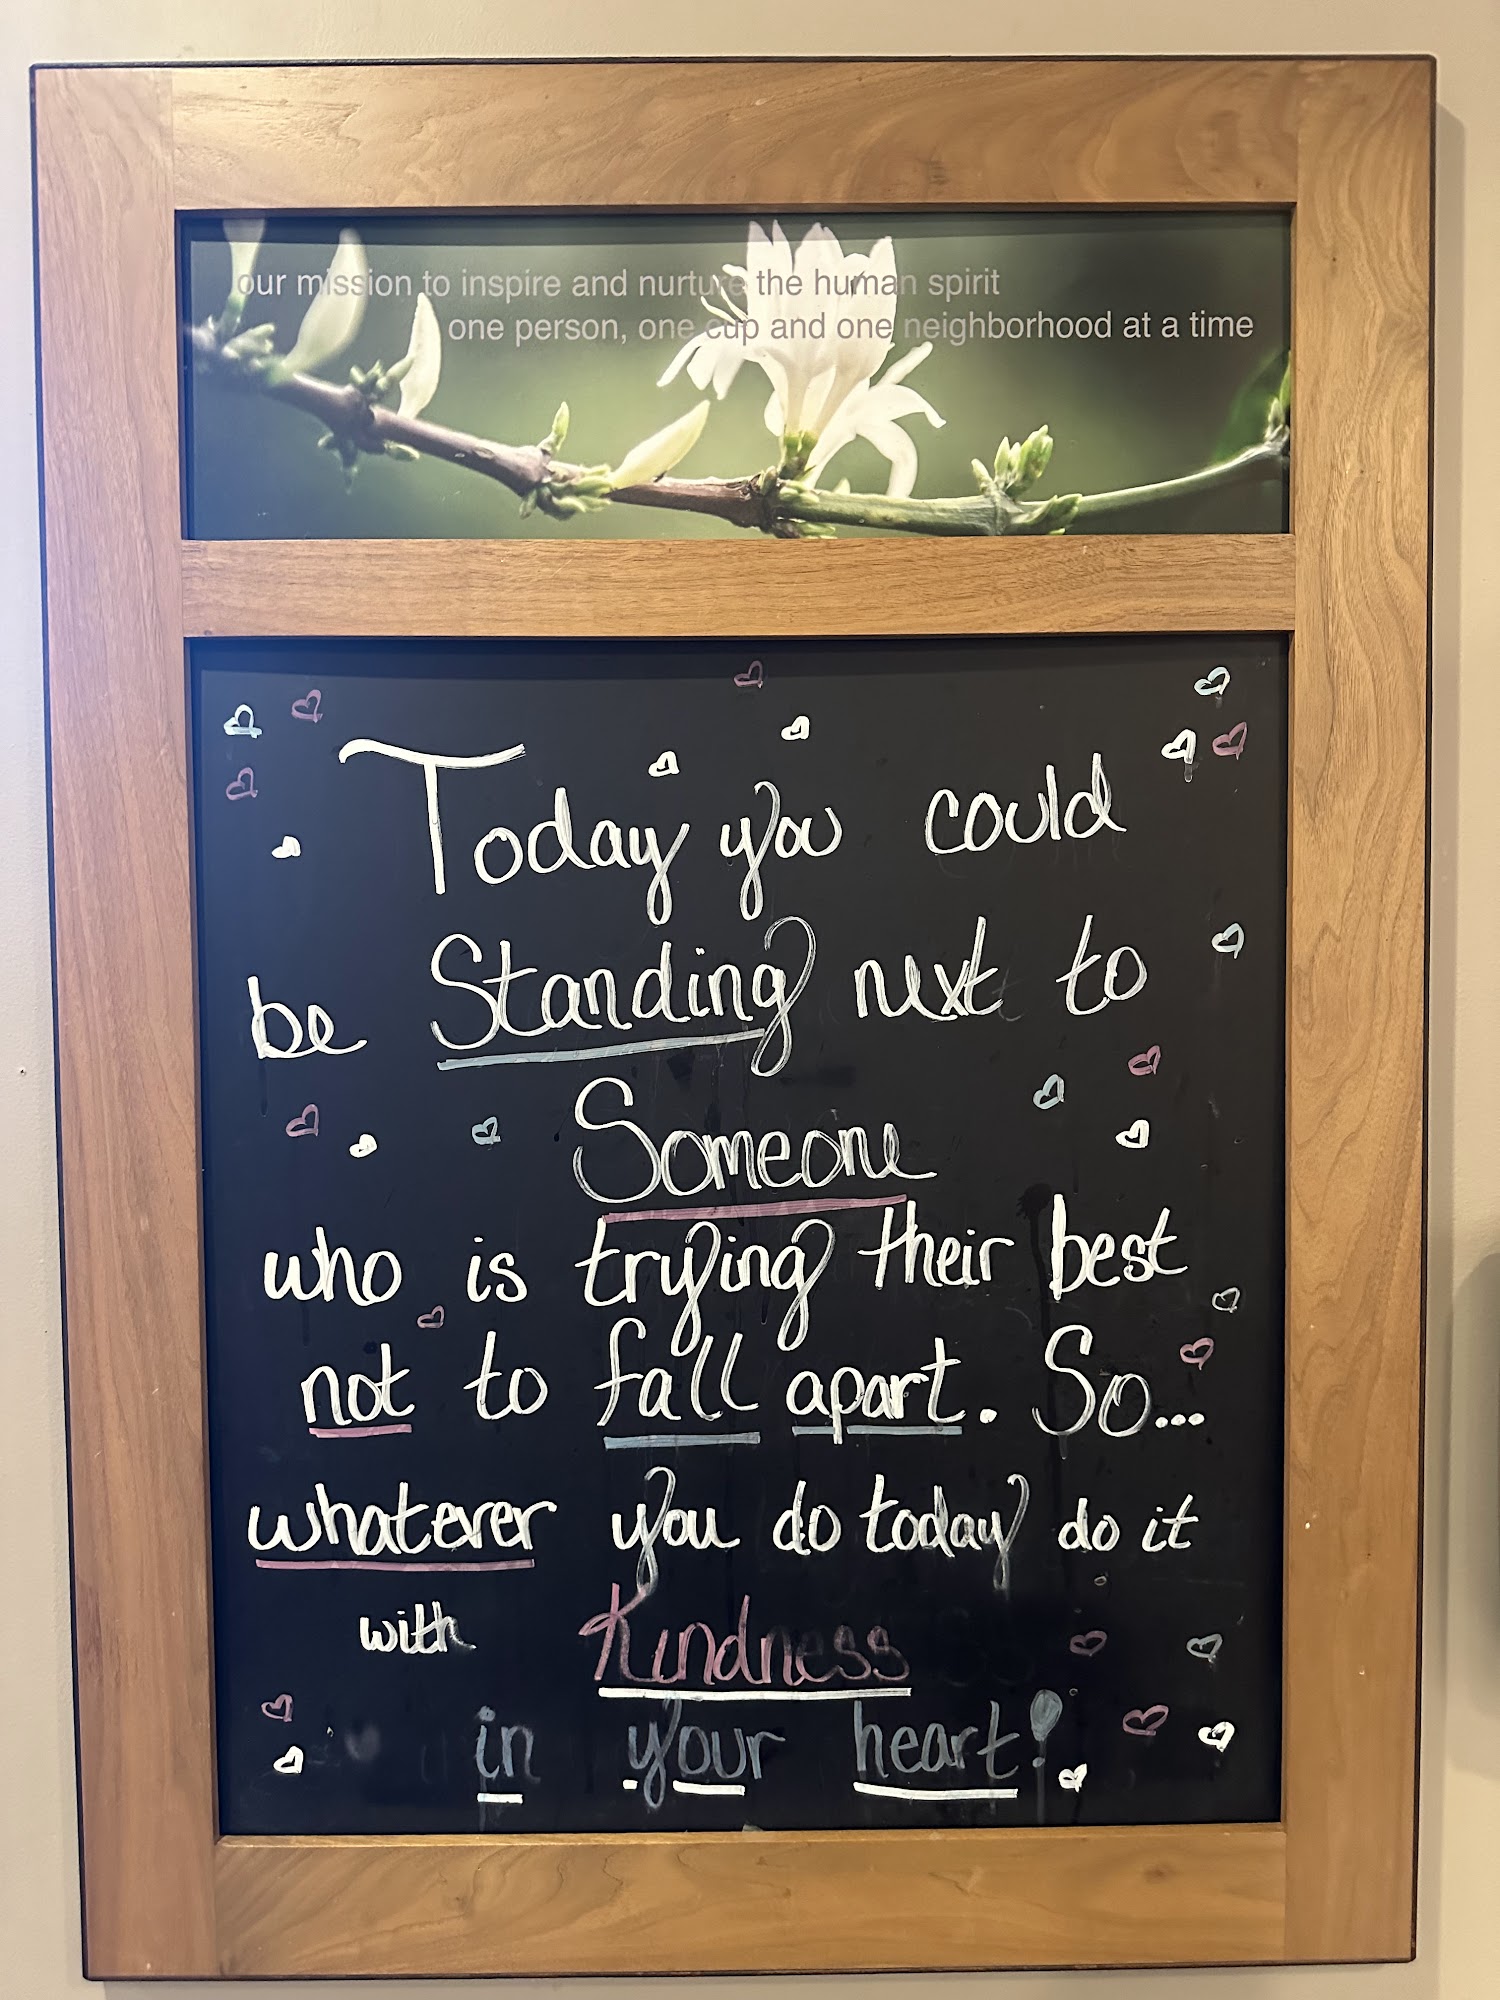 our mission to inspire and nurture the human spirit
one person, one cup and one neighborhood at a time
Today you could
be Standing next to
Someone
who is trying their best
not to fall apart. So...
whatever you do today do it
with Kindness
in your heart!